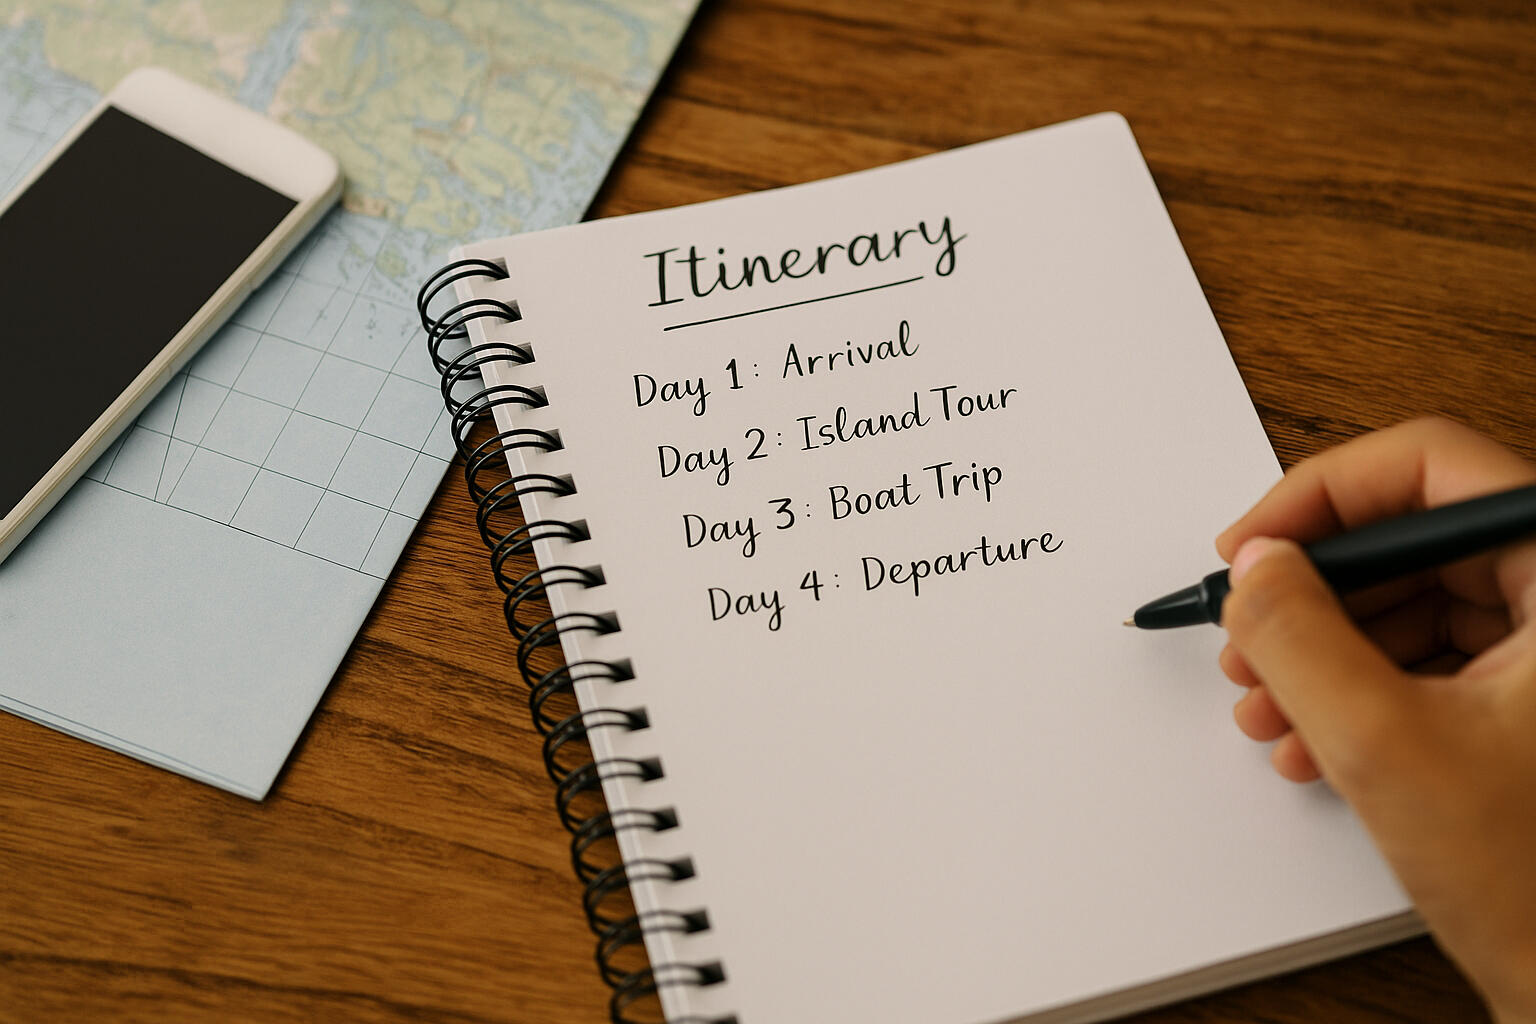 Itinerary
Day 1: Arrival
Day 2: Island Tour
Day 3: Boat Trip
Day 4: Departure